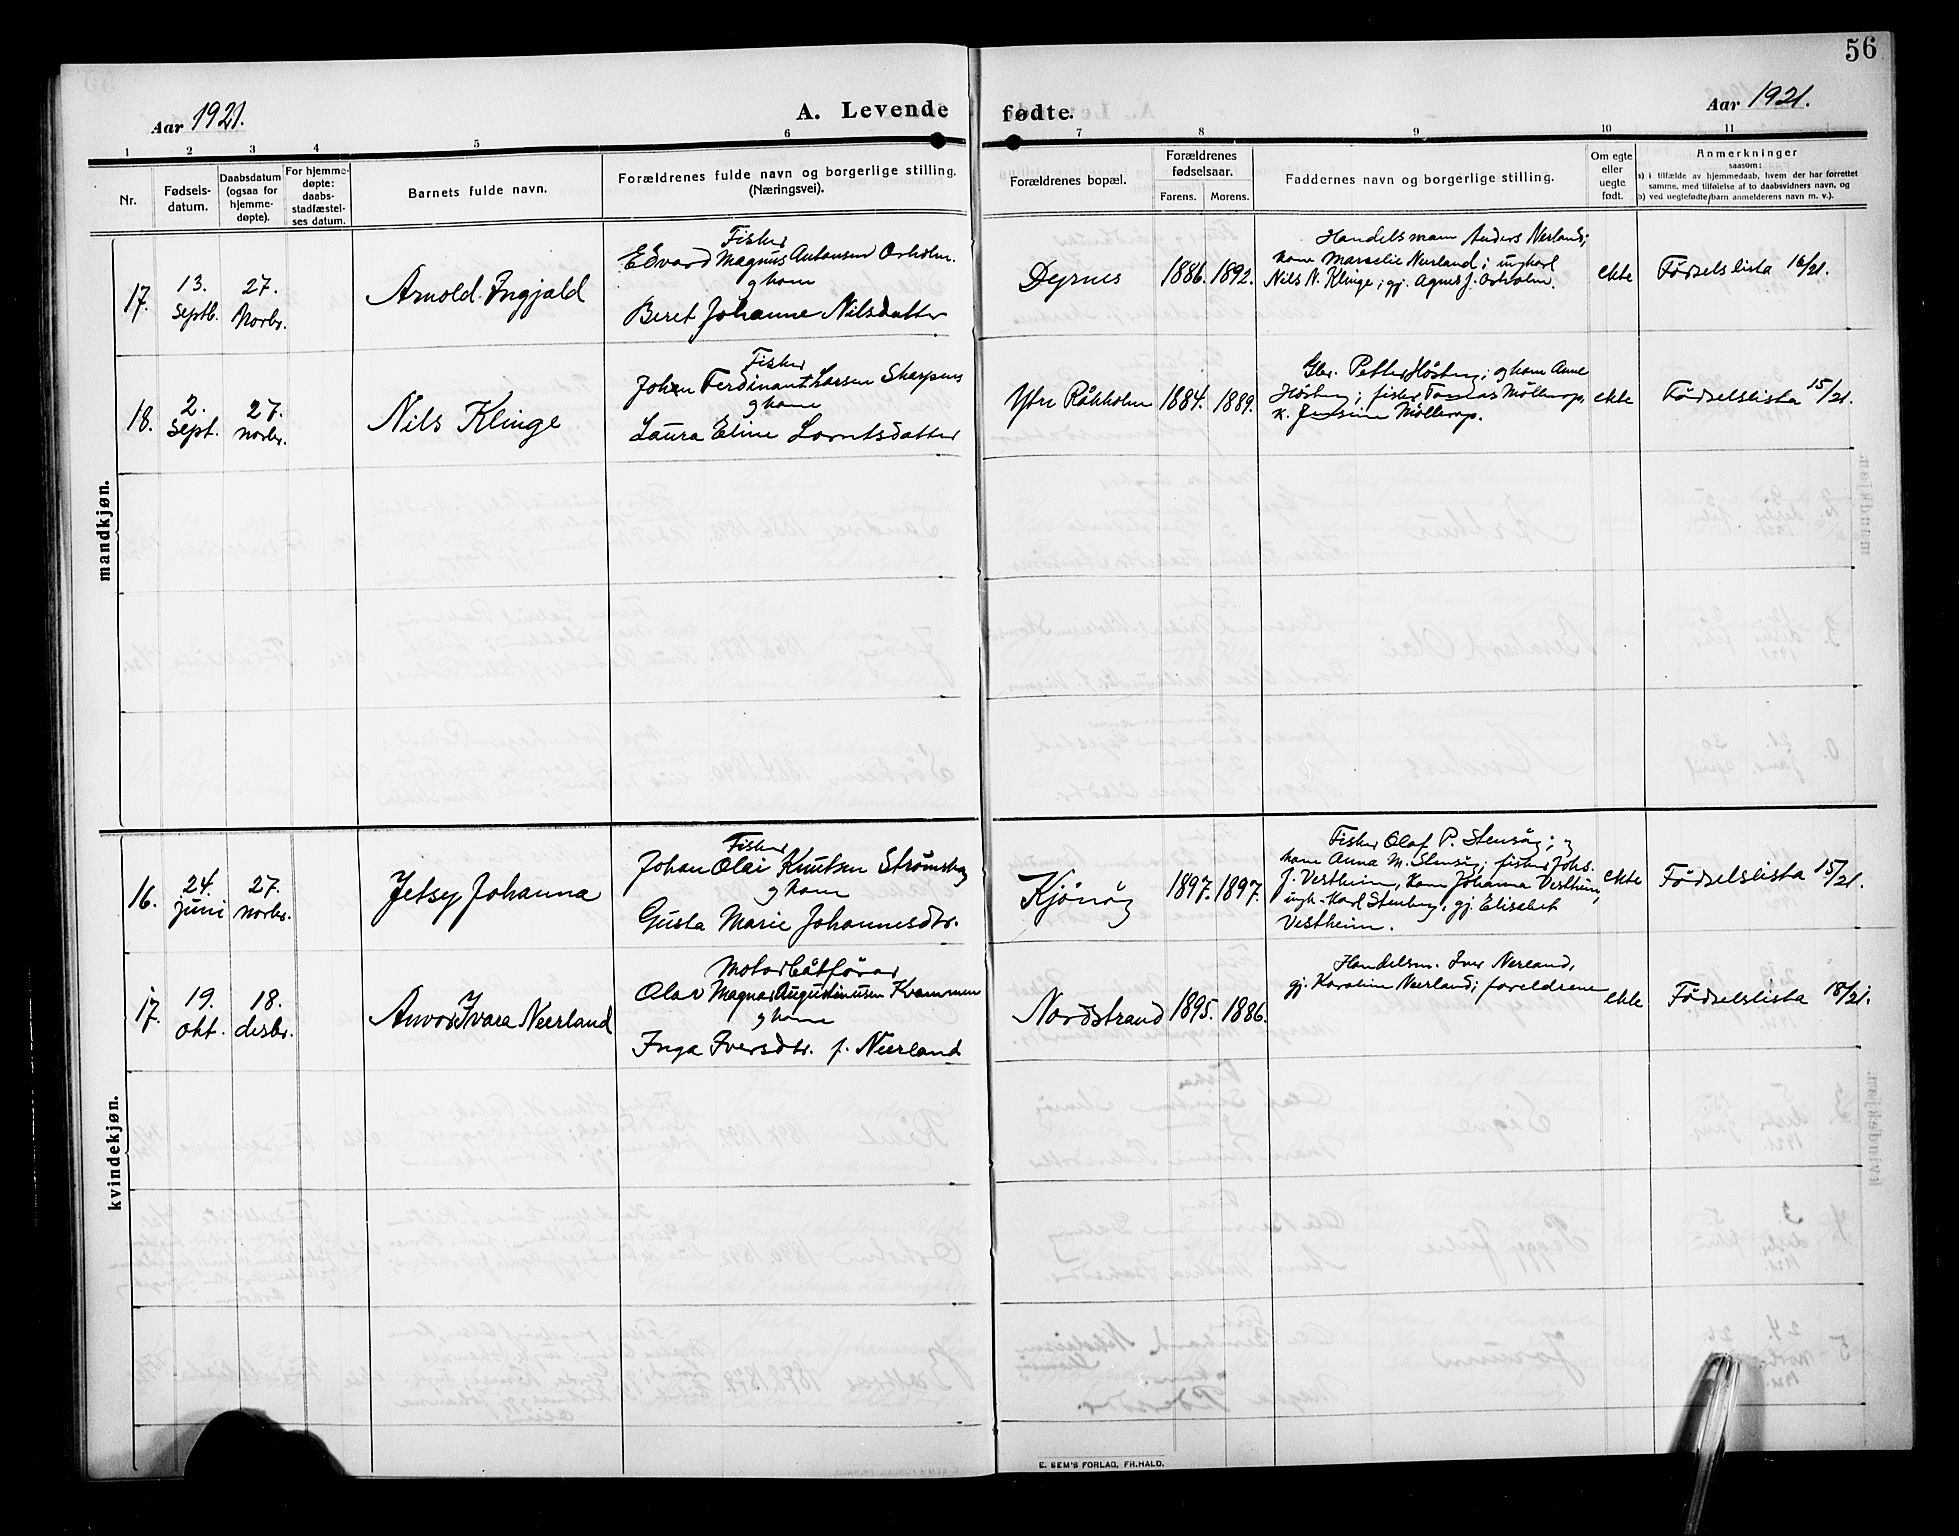 56
Aar 1921.
A. Levende fødte.
Aar 1921.
1 2 3 4 5 6 7 8 9 10 11
Nr.
Fødsels-
datum.
Daabsdatum
(ogsaa for
hjemme-
døpte).
For hjemme-
døpte:
daabs-
stadfæstel-
ses datum.
Barnets fulde navn.
Forældrenes fulde navn og borgerlige stilling.
(Næringsvei).
Forældrenes bopæl.
Forældrenes
fødselsaar.
Farens. Morens.
Faddernes navn og borgerlige stilling.
Om egte
eller
uegte
født.
Anmerkninger
saasom:
a) i tilfælde av hjemmedaab, hvem der har forrettet
samme, med tilføielse af to daabsvidners navn, og
b) ved uegtefødte barn anmelderens navn m. v.).
mandkjøn.
17.
13.
Septb.
27.
Novbr.
Arnold Ingjald
Fisker
Edvard Magnus Antonsen Orholm.
og kone
Beret Johanne Nilsdatter
Dyrnes
1886. 1892.
Handelsmann Anders Nerland;
kone Marselie Neerland; ungkarl
Nils N. Klinge; gj. Agnes J.
ekte
Fødselslista 16/21.
18.
2.
Sept.
27.
novbr.
Nils Klinge
Fisker
Johan Ferdinant Larsen Skarpnes
og kone
Laura Eline Lorntsdatter
Ytre Råkholm
1884. 1889.
Gbr. Petter og kone Anne
fisker Tomas Möllerop,
k. Jensine Möllerop.
ekte
Fødselslista 15/21.
kvindekjøn.
16.
24.
juni
27.
novbr.
Jetsy Johanna
Fisker
Johan Olai Knutsen Strömskag
og kone
Gusta Marie Johannesdtr.
Kjönöy
1897. 1897.
Fisker Olaf P. Stensöy; og
kone Anna M. Stensöy; fisker Johs.
J. Vestheim, kone Johanna Vestheim,
ungk. Karl gj. Elisabet
Vestheim.
ekte
Fødselslista 15/21.
17.
19.
okt.
18.
desbr.
Anvor Ivara Neerland
Motorbåtförar
Olav Magnar Augustinusen Kvammen
og kone
Inga Iversdtr. f. Neerland
Nordstrand
1895. 1886.
Handelsm. Iver Nerland,
gj. Karoline Neerland; foreldrene
ekte
Fødselslista 18/21.
E. SEM'S FORLAG, FR.HALD.